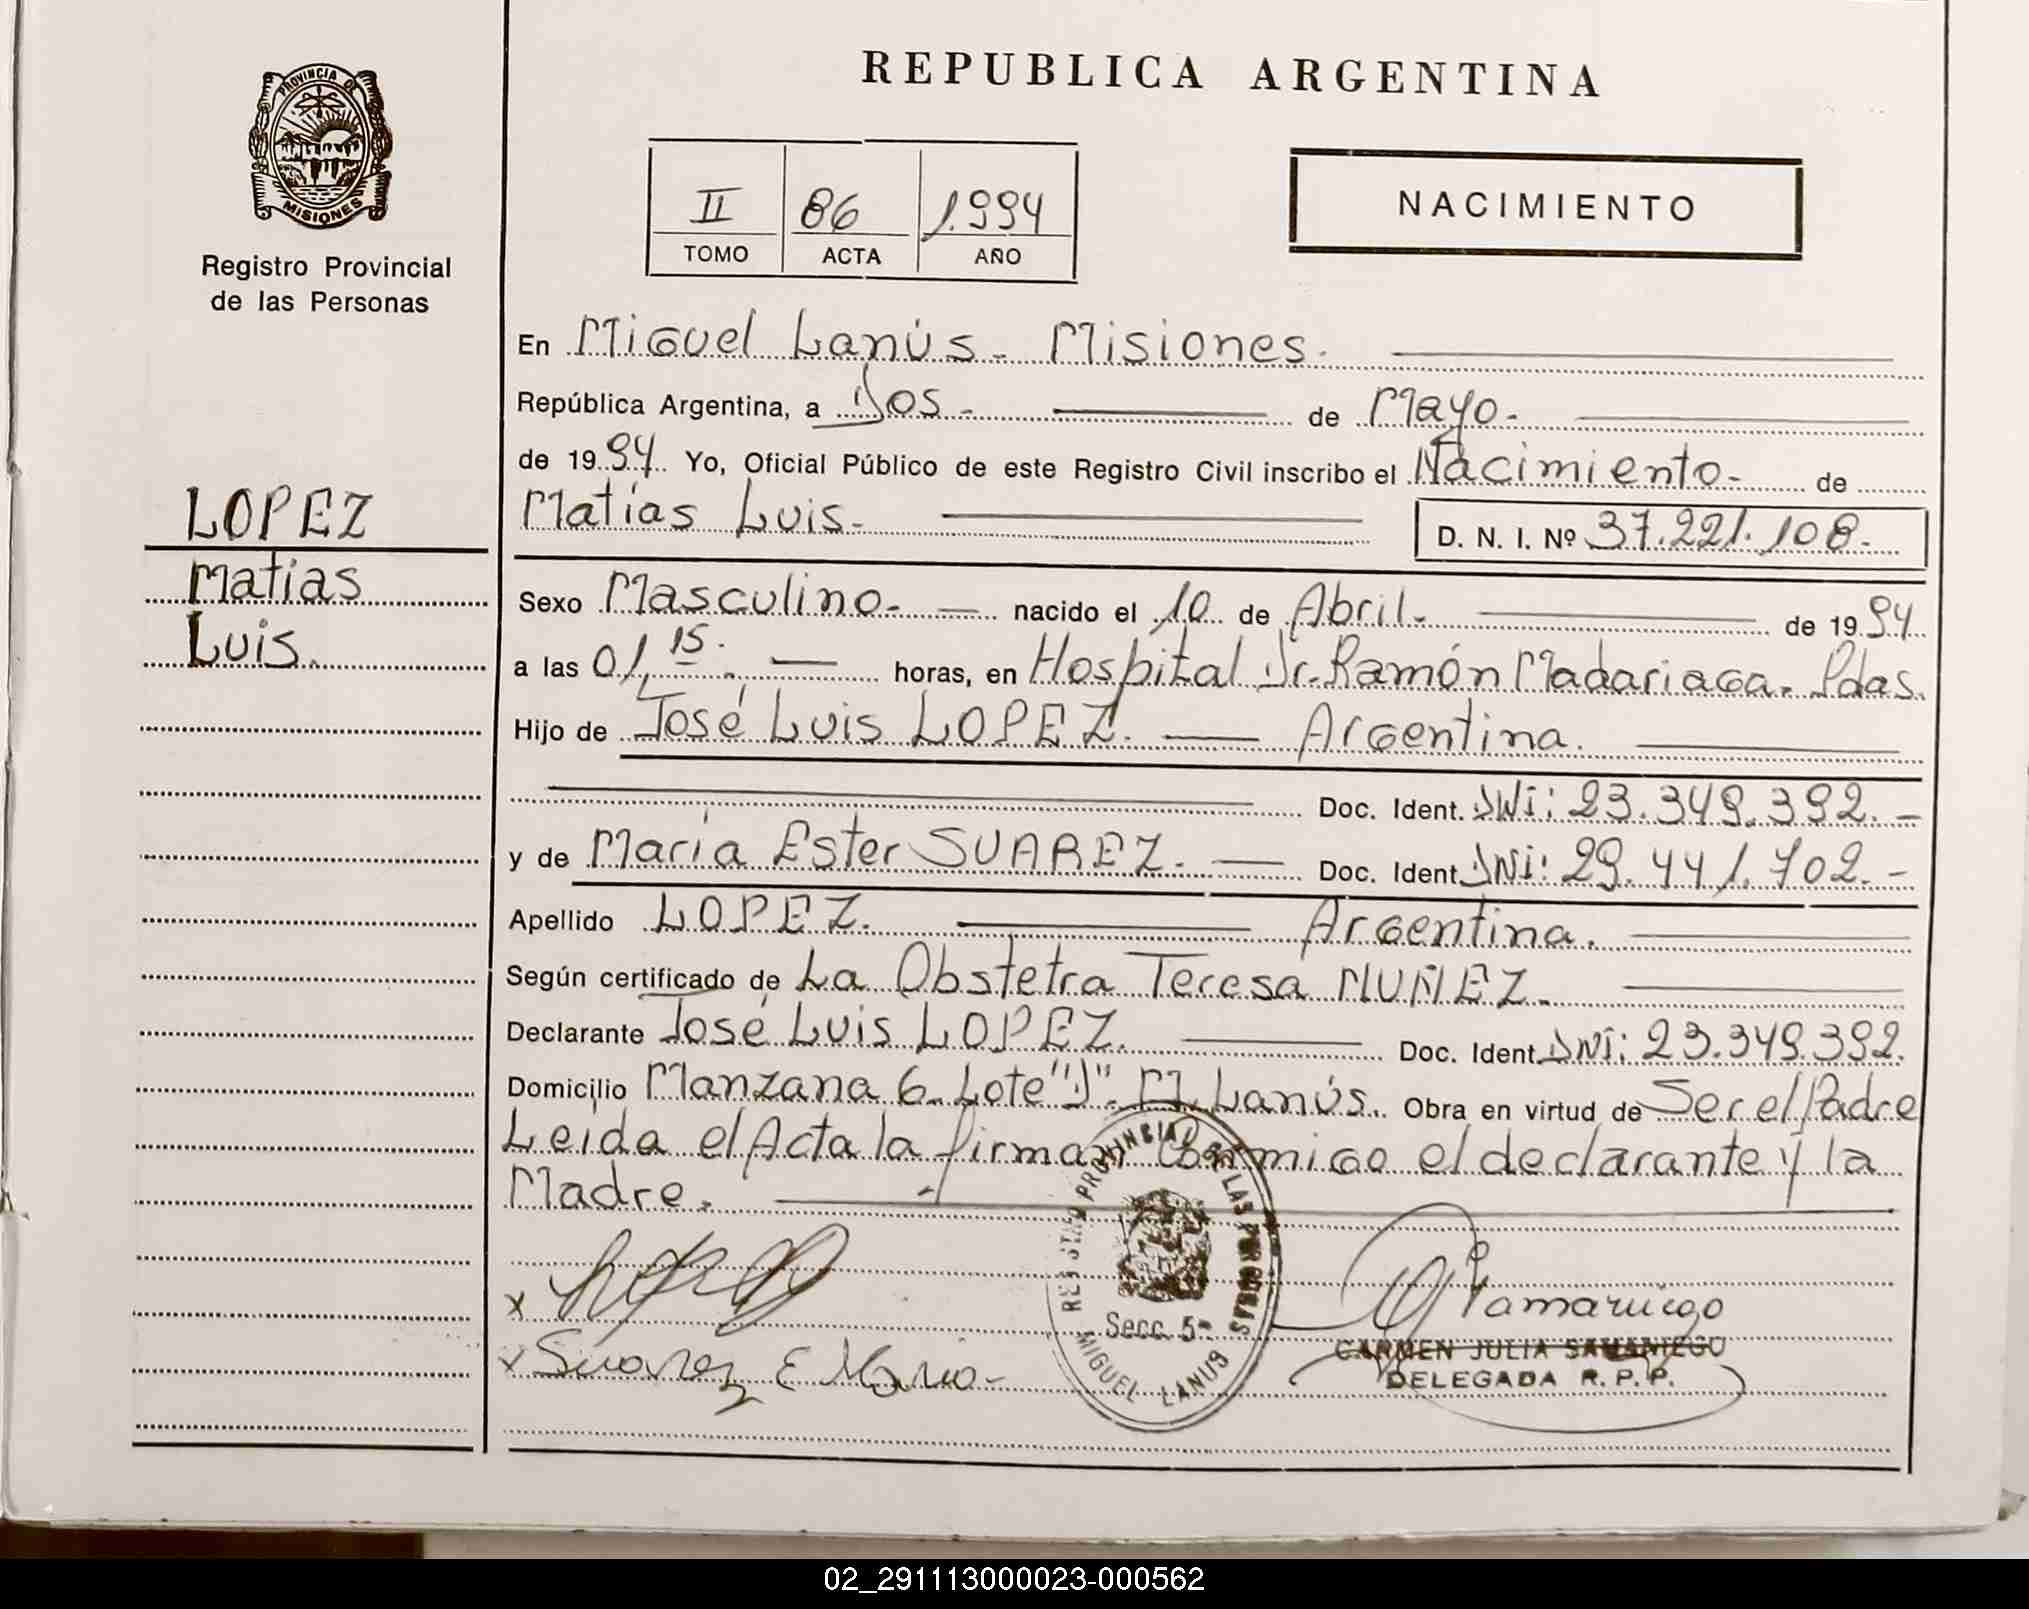 REPUBLICA ARGENTINA
PROVINCIA DE
MISIONES
Registro Provincial
de las Personas
II 86 1994
TOMO ACTA AÑO
NACIMIENTO
LOPEZ
Matías
Luis.
En Miguel Lanús - Misiones.
República Argentina, a Dos - de Mayo -
de 1994. Yo, Oficial Público de este Registro Civil inscribo el Nacimiento - de
Matías Luis - D. N. I. Nº 37.221.108 -
Sexo Masculino - nacido el 10 de Abril. de 1994
a las 01,15. horas, en Hospital Dr. Ramón Madariaga. Pdas.
Hijo de José Luis LOPEZ. Argentina.
Doc. Ident. DNI: 23.349.392. -
y de María Ester SUAREZ. Doc. Ident. DNI: 29.441.702. -
Apellido LOPEZ. Argentina.
Según certificado de La Obstetra Teresa NUÑEZ.
Declarante José Luis LOPEZ. Doc. Ident. DNI: 23.349.392.
Domicilio Manzana 6 - Lote "D". M. Lanús. Obra en virtud de Ser el Padre
Leida el Acta la firman Conmigo el declarante y la
Madre.
REGISTRO PROVINCIAL DE LAS PERSONAS
Secc. 5ª
MIGUEL LANUS
x
x Suarez E Maria -
Samaniego
CARMEN JULIA SAMANIEGO
DELEGADA R. P. P.
02_291113000023-000562